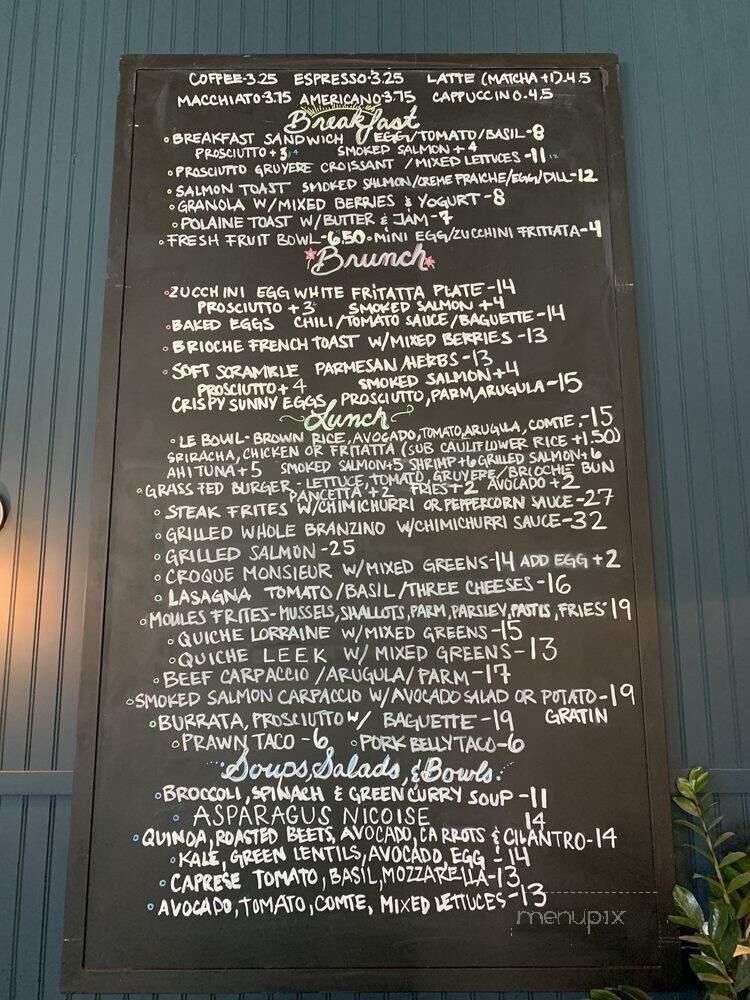 COFFEE-3.25 ESPRESSO-3.25 LATTE (MATCHA +1).4.5
MACCHIATO-3.75 AMERICANO-3.75 CAPPUCCINO.4.5
Breakfast
BREAKFAST SANDWICH EGG/TOMATO/BASIL-8
PROSCIUTTO+3 SMOKED SALMON+4
PROSCIUTTO GRUYERE CROISSANT /MIXED LETTUCES-11
SALMON TOAST SMOKED SALMON/CREME FRAICHE/EGG/DILL-12
GRANOLA W/MIXED BERRIES & YOGURT-8
POLAINE TOAST W/BUTTER & JAM-7
FRESH FRUIT BOWL-6.50 MINI EGG/ZUCCHINI FRITTATA-4
Brunch
ZUCCHINI EGG WHITE FRITATTA PLATE-14
PROSCIUTTO+3 SMOKED SALMON+4
BAKED EGGS CHILI/TOMATO SAUCE/BAGUETTE-14
BRIOCHE FRENCH TOAST W/MIXED BERRIES-13
SOFT SCRAMBLE PARMESAN/HERBS-13
PROSCIUTTO+4 SMOKED SALMON+4
CRISPY SUNNY EGGS PROSCIUTTO, PARM, ARUGULA-15
Lunch
LE BOWL-BROWN RICE, AVOCADO, TOMATO, ARUGULA, COMTE,-15
SRIRACHA, CHICKEN OR FRITATTA (SUB CAULIFLOWER RICE +1.50)
AHI TUNA+5 SMOKED SALMON+5 SHRIMP+6 GRILLED SALMON+6
GRASS FED BURGER-LETTUCE, TOMATO, GRUYERE/BRIOCHE BUN
PANCETTA+2 FRIES+2 AVOCADO+2
STEAK FRITES W/CHIMICHURRI OR PEPPERCORN SAUCE-27
GRILLED WHOLE BRANZINO W/CHIMICHURRI SAUCE-32
GRILLED SALMON-25
CROQUE MONSIEUR W/MIXED GREENS-14 ADD EGG+2
LASAGNA TOMATO/BASIL/THREE CHEESES-16
MOULES FRITES-MUSSELS, SHALLOTS, PARM, PARSLEY, PASTIS, FRIES 19
QUICHE LORRAINE W/MIXED GREENS-15
QUICHE LEEK W/ MIXED GREENS-13
BEEF CARPACCIO /ARUGULA/PARM-17
SMOKED SALMON CARPACCIO W/AVOCADO SALAD OR POTATO-19
GRATIN
BURRATA, PROSCIUTTO W/ BAGUETTE-19
PRAWN TACO-6 PORK BELLY TACO-6
Soups, Salads, & Bowls.
BROCCOLI, SPINACH & GREEN CURRY SOUP-11
ASPARAGUS NICOISE 14
QUINOA, ROASTED BEETS, AVOCADO, CARROTS & CILANTRO-14
KALE, GREEN LENTILS, AVOCADO, EGG-14
CAPRESE TOMATO, BASIL, MOZZARELLA-13
AVOCADO, TOMATO, COMTE, MIXED LETTUCES-13
menupix